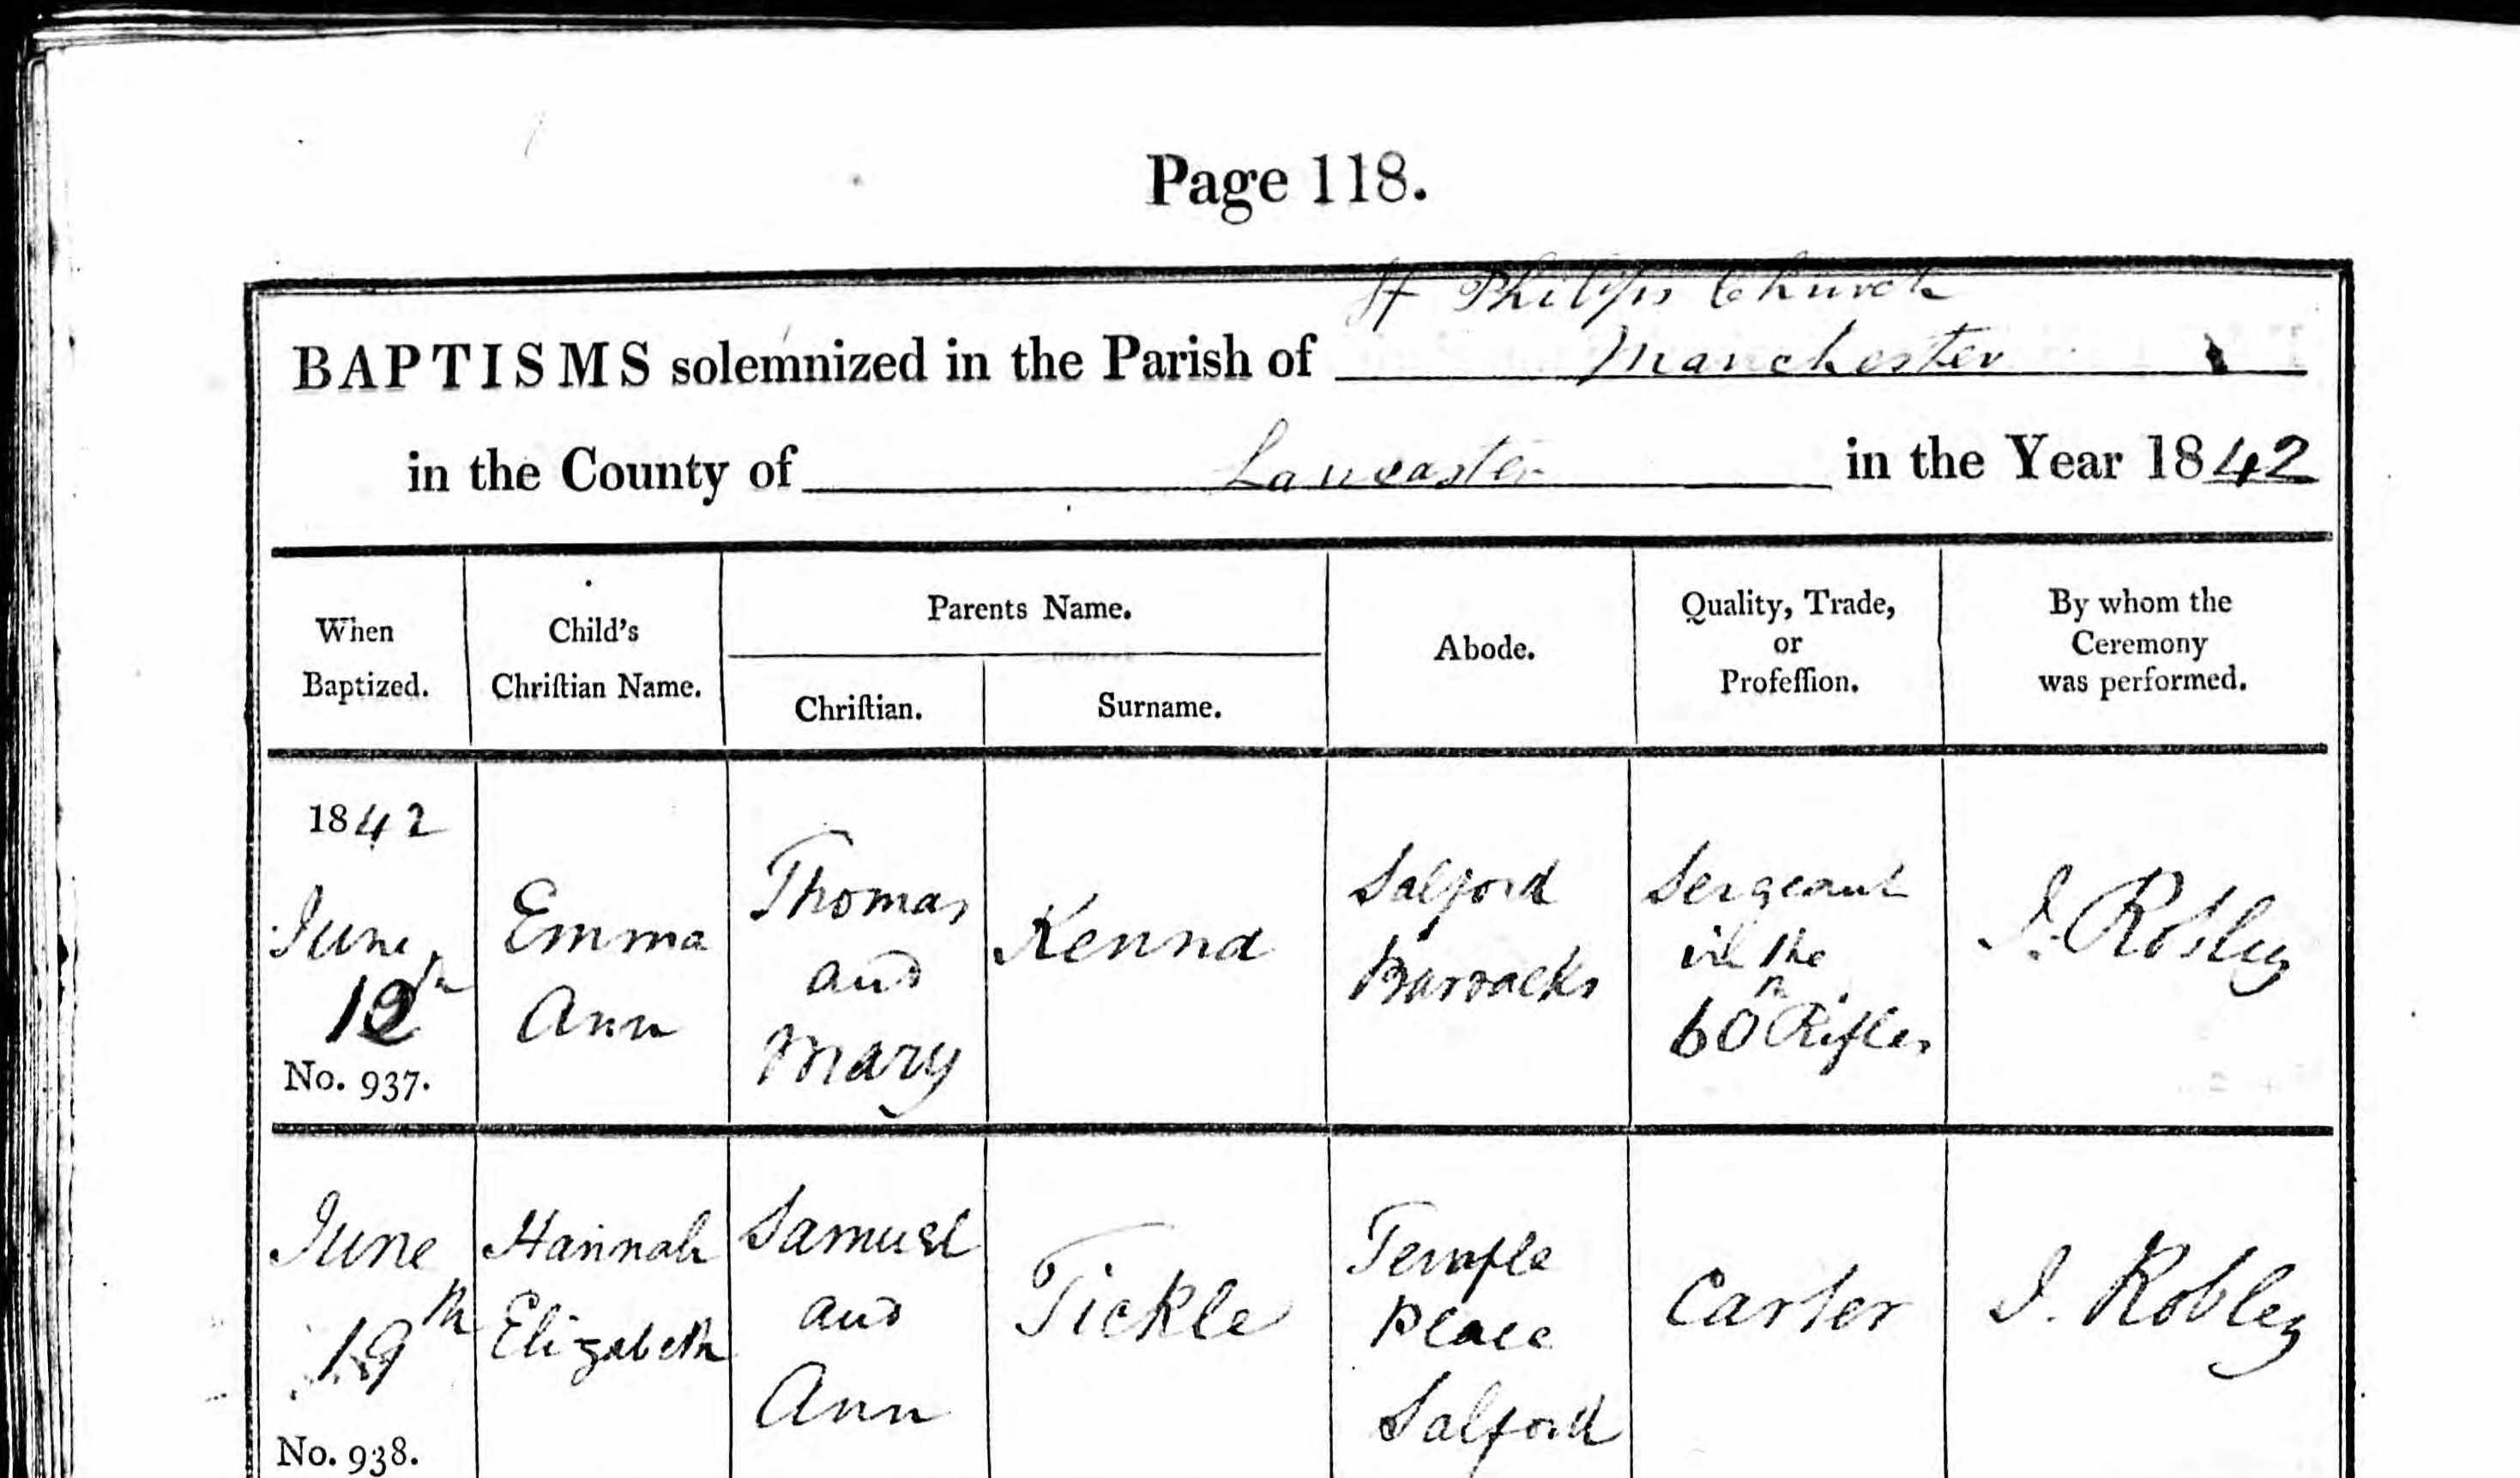 Page 118.
St Philips Church
BAPTISMS solemnized in the Parish of Manchester
in the County of Lancaster in the Year 1842
When
Baptized.
Child's
Chriſtian Name.
Parents Name.
Chriſtian.
Surname.
Abode.
Quality, Trade,
or
Profeſſion.
By whom the
Ceremony
was performed.
1842
June
12th
No. 937.
Emma
Ann
Thomas
and
Mary
Kenna
Salford
Barracks
Sergeant
in the
60th Rifles
J. Robley
June
19th
No. 938.
Hannah
Elizabeth
Samuel
and
Ann
Tickle
Temple
Place
Salford
Carter
J. Robley